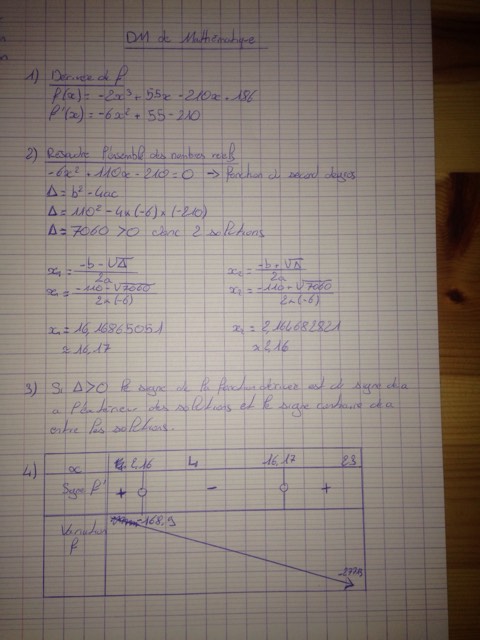 DM de Mathématique
1) Dériver de f
f(x) = -2x³ + 55x - 210x + 186
f'(x) = -6x² + 55 - 210
2) Résoudre l'ensemble des nombres réels
-6x² + 110x - 210 = 0 → fonction du second degrés
Δ = b² - 4ac
Δ = 110² - 4 x (-6) x (-210)
Δ = 7060 > 0 donc 2 solutions
x₁ = -b - √Δ / 2a x₂ = -b + √Δ / 2a
x₁ = -110 - √7060 / 2 x (-6) x₂ = -110 + √7060 / 2 x (-6)
x₁ = 16,16865051 x₁ = 2,164682821
≈ 16,17 ≈ 2,16
3) Si Δ > 0 le signe de la fonction dériver est de signe de a
a l'extérieur des solutions et le signe contraire de a
entre les solutions.
4) x 2,16 4 16,17 23
Signe f' + 0 - 0 +
Variation
f